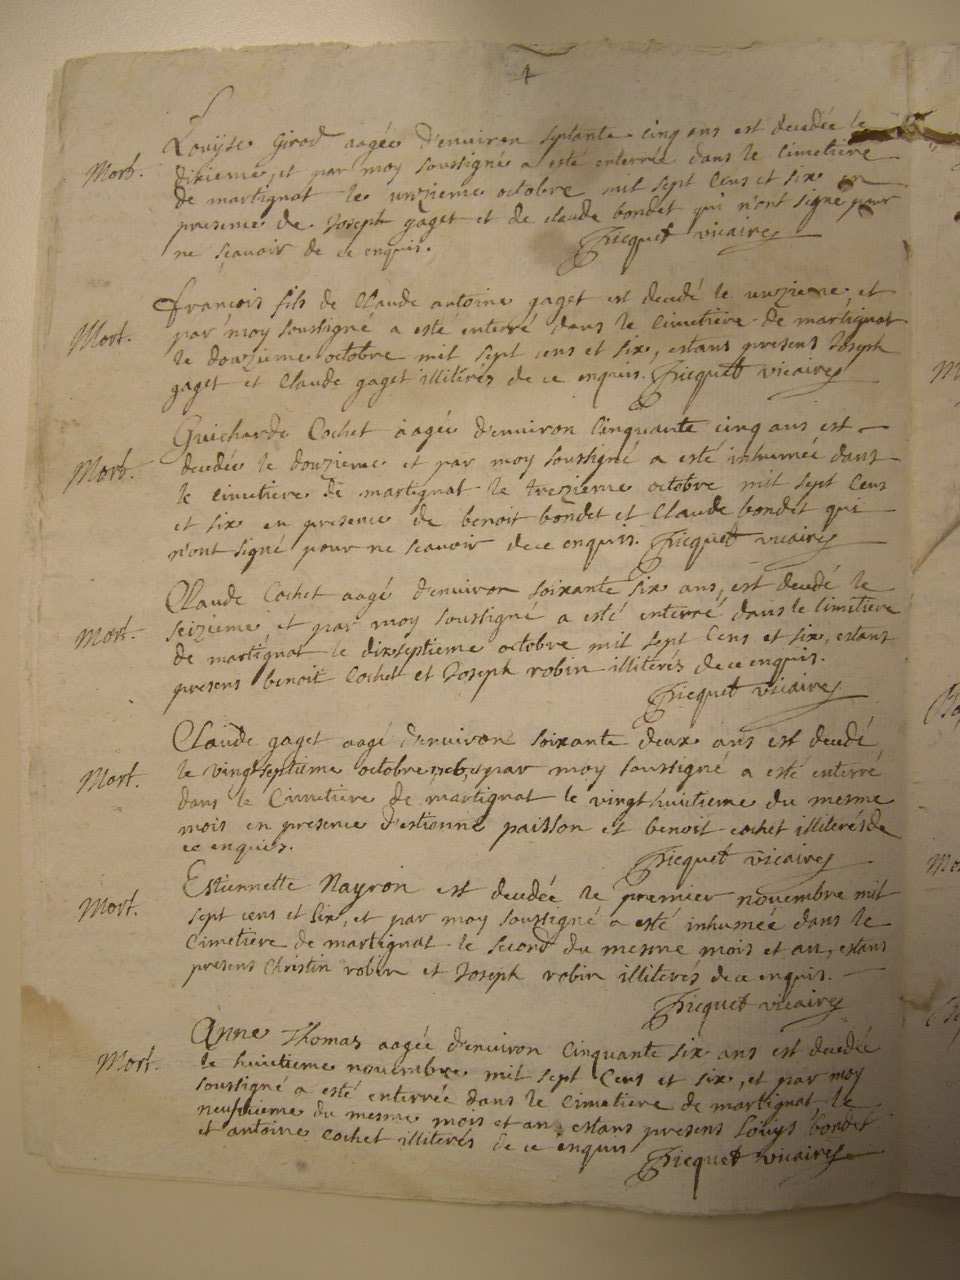 4
Louyse Girod aagée d'environ septante cinq ans est decedée le
Mort. dixieme, et par moy soussigné a esté enterrée dans le cimetiere
de martignat le unzieme octobre mil sept cens et six en
presence de Joseph gaget et de claude bondet qui n'ont signé pour
ne sçavoir de ce enquis. Fricquet vicaire
françois fils de Claude antoine gaget est decedé le unzieme, et
Mort. par moy soussigné a esté enterré dans le cimetiere de martignat
le douzieme octobre mil sept cens et six, estans presens Joseph
gaget et Claude gaget illiterés de ce enquis. Fricquet vicaire
Guicharde Cochet aagée d'environ cinquante cinq ans est
Mort. decedée le douzieme et par moy soussigné a esté inhumée dans
le cimetiere de martignat le trezieme octobre mil sept cens
et six en presence de benoit bondet et Claude bondet qui
n'ont signé pour ne scavoir de ce enquis. Fricquet vicaire
Claude Cochet aagé d'environ soixante six ans, est decedé le
Mort. seizieme et par moy soussigné a esté enterré dans le cimetiere
de martignat le dixseptieme octobre mil sept cens et six, estans
presens benoit Cochet et Joseph robin illiterés de ce enquis.
Fricquet vicaire
Claude gaget aagé d'environ soixante deux ans est decedé
Mort. le vingtseptieme octobre par moy soussigné a esté enterré
dans le Cimetiere de martignat le vingt huitieme du mesme
mois en presence d'estienne paisson et benoit cochet illiterés de
ce enquis. Fricquet vicaire
Estiennette Nayron est decedée le premier novembre mil
Mort. sept cens et six, et par moy soussigné a esté inhumée dans le
cimetiere de martignat le second du mesme mois et an, estans
presens Christin robin et Joseph robin illiterés de ce enquis.
Fricquet vicaire
Anne Thomas aagée d'environ cinquante six ans est decedée
Mort. le huitieme novembre mil sept cens et six, et par moy
soussigné a esté enterrée dans le cimetiere de martignat le
neufvieme du mesme mois et an estans presens Louys bondet
et antoine cochet illiterés de ce enquis Fricquet vicaire